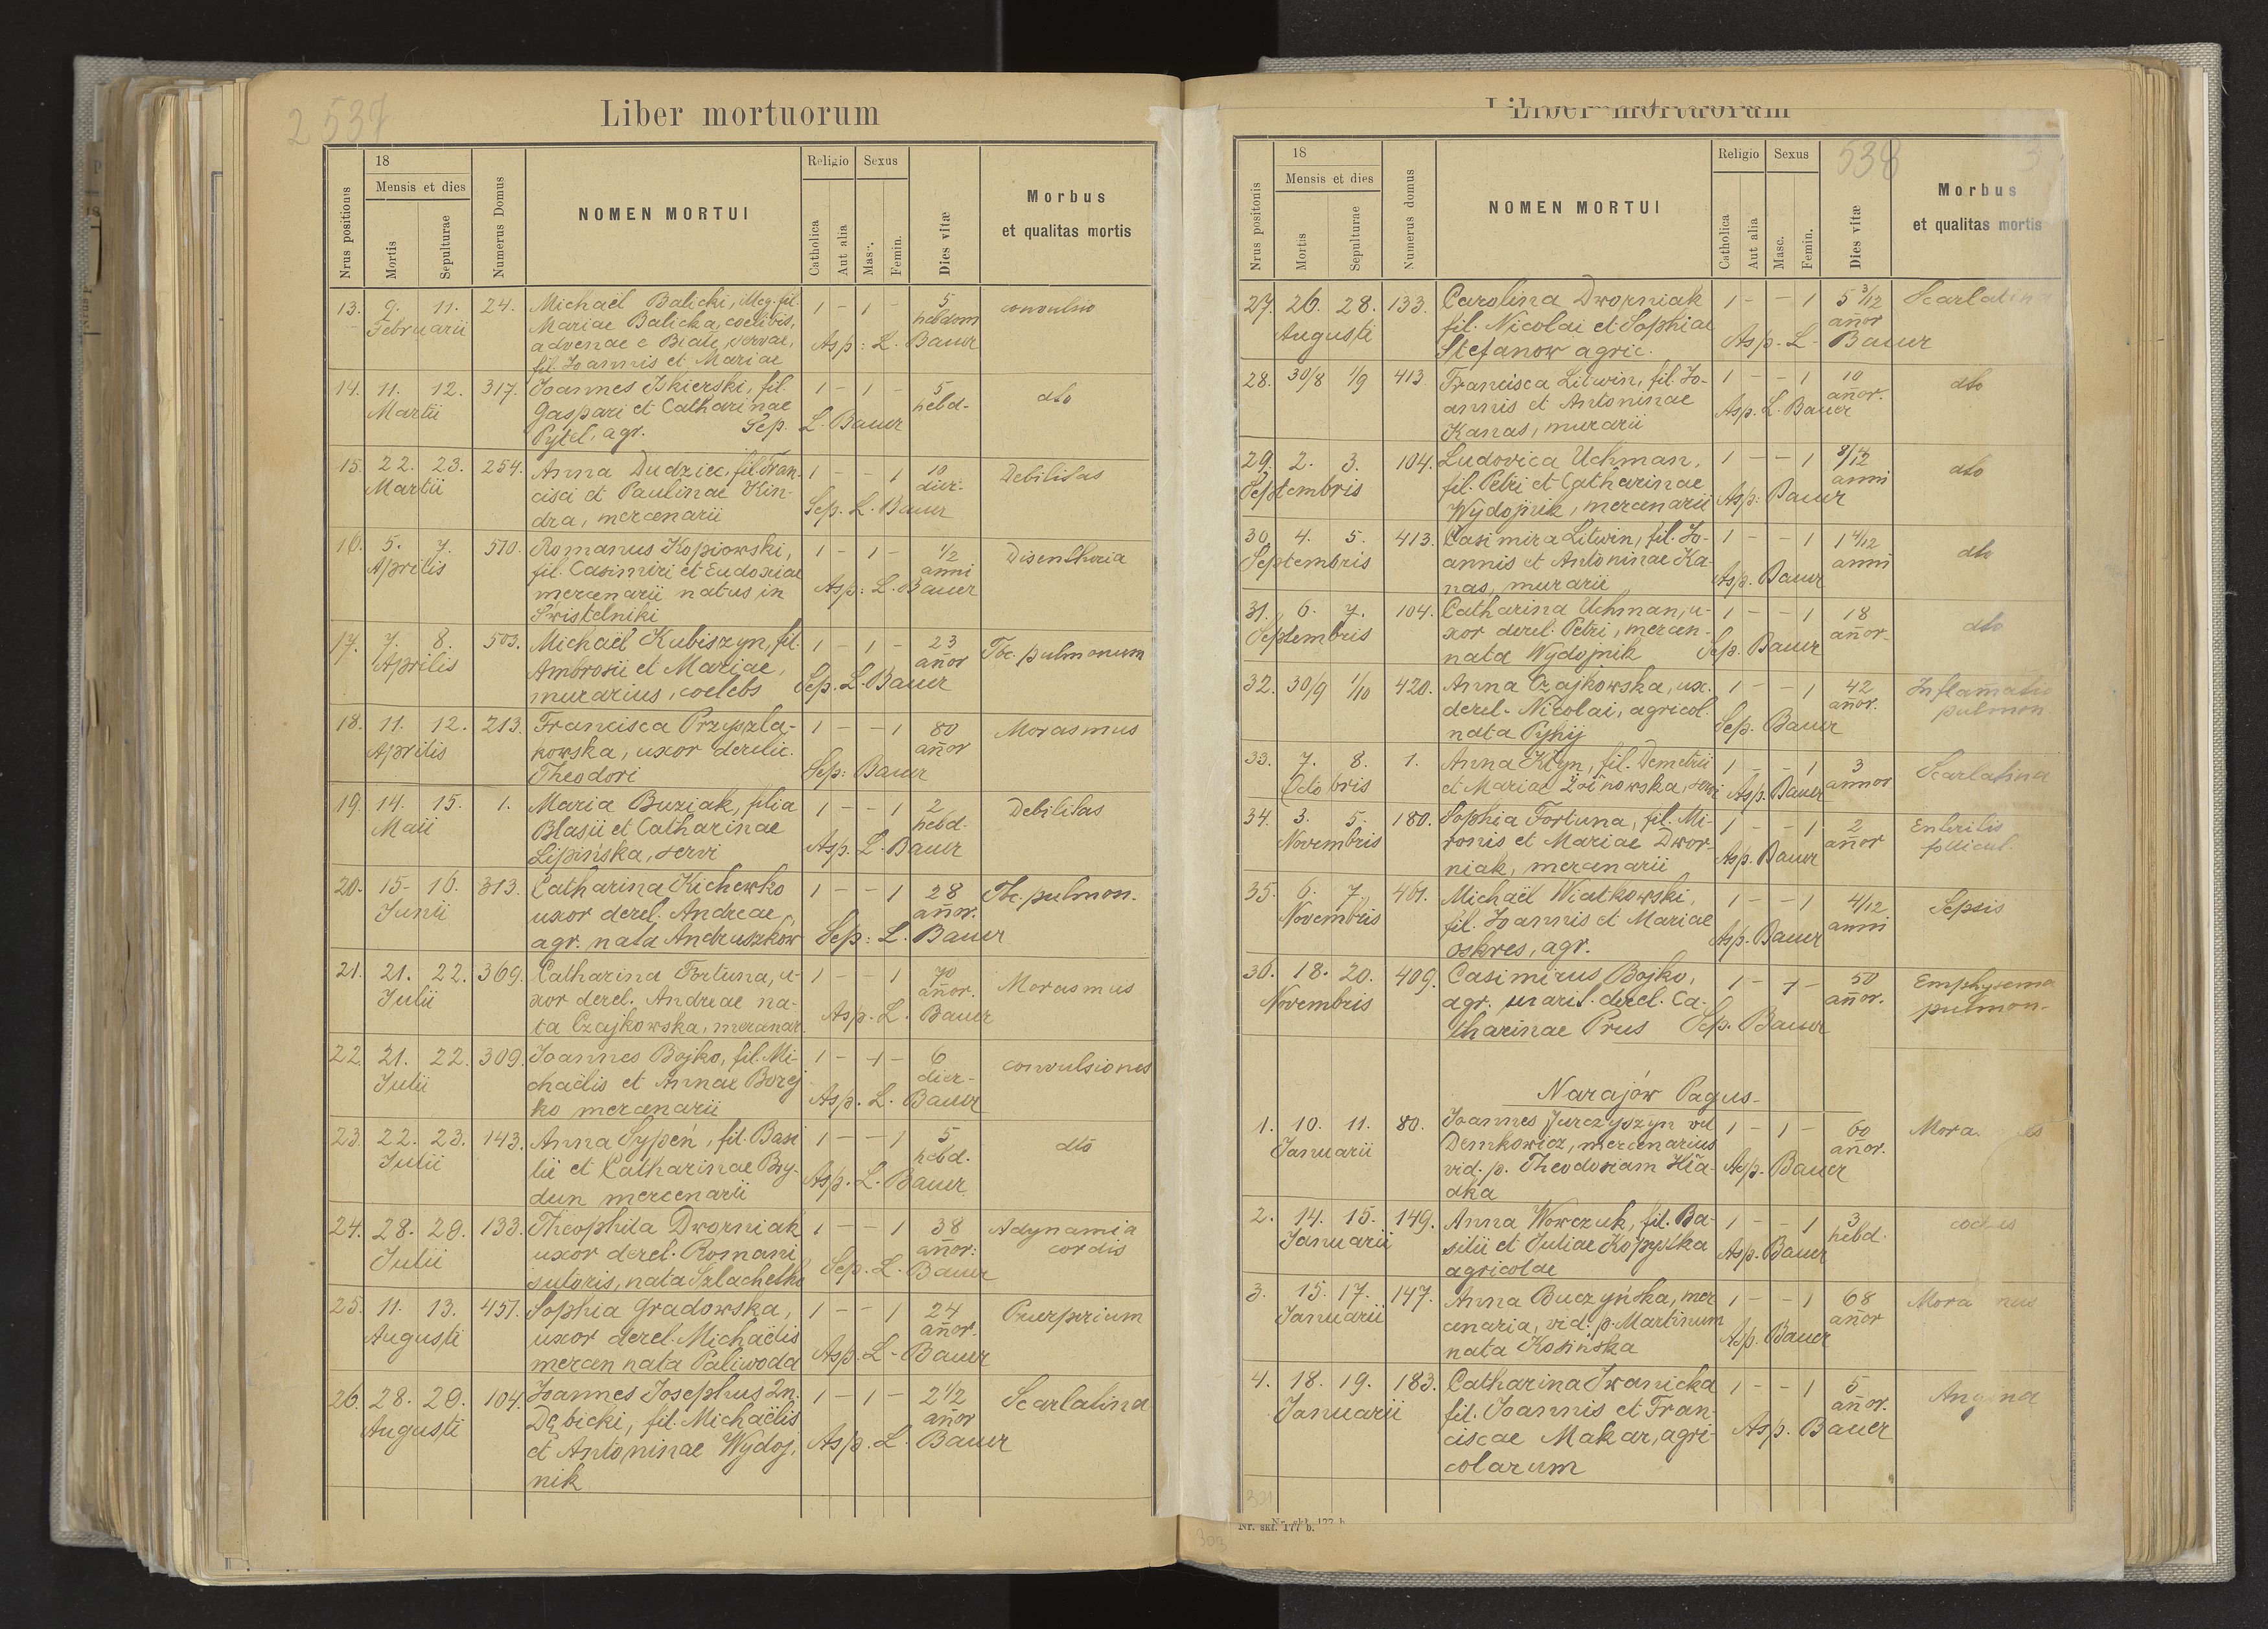 2 537
Liber mortuorum
Nrus positionis
18
Mensis et dies
Mortis
Sepulturae
Numerus Domus
NOMEN MORTUI
Religio
Catholica
Aut alia
Sexus
Masc.
Femin.
Dies vitæ
Morbus
et qualitas mortis
13. 9. 11. 24. Michaël Balicki, illeg. fil. 1 - 1 - 5 convulsio
Februarii Mariae Balicka, coelibis, hebdom
advenae e Biale, servae, Asp: L. Bauer
fil. Joannis et Mariae
14. 11. 12. 317. Joannes Iskierski, fil. 1 - 1 - 5 dto
Martii Gaspari et Catharinae hebd.
Pytel, agr. Sep. L. Bauer
15. 22. 23. 254. Anna Dudziec, fil. Fran- 1 - - 1 10 Debilitas
Martii cisci et Paulinae Kin- dier.
dra, mercenarii Sep. L. Bauer
16. 5. 7. 570. Romanus Kopiowski, 1 - 1 - 1/2 Disentheria
Aprilis fil. Casimiri et Eudoxiae anni
mercenarii natus in Asp: L. Bauer
Swistelniki
17. 7. 8. 503. Michaël Kubiszyn, fil. 1 - 1 - 23 Tbc. pulmonum
Aprilis Ambrosii et Mariae, añor
murarius, coelebs Sep. L. Bauer
18. 11. 12. 213. Francisca Przyszla- 1 - - 1 80 Morasmus
Aprilis kowska, uxor derelic. añor
Theodori Sep: Bauer
19. 14. 15. 1. Maria Buziak, filia 1 - - 1 2 Debilitas
Maii Blasii et Catharinae hebd.
Lipińska, servi Asp. L. Bauer
20. 15. 16. 313. Catharina Kichewko 1 - - 1 28 Tbc. pulmon.
Junii uxor derel. Andreae, añor.
agr. nata Andruszków Sep: L. Bauer
21. 21. 22. 369. Catharina Fortuna, u- 1 - - 1 70 Morasmus
Julii xor derel. Andreae na- añor.
ta Czajkowska, mercenar. Asp. L. Bauer
22. 21. 22. 309. Joannes Bojko, fil. Mi- 1 - 1 - 6 convulsiones
Julii chaëlis et Annae Borej dier.
ko mercenarii Asp. L. Bauer
23. 22. 23. 143. Anna Sypeń, fil. Basi 1 - - 1 5 dto
Julii lii et Catharinae Bry- hebd.
dun mercenarii Asp. L. Bauer
24. 28. 29. 133. Theophila Dworniak 1 - - 1 38 Adynamia
Julii uxor derel. Romani añor: cordis
sutoris, nata Szlachetko Sep. L. Bauer
25. 11. 13. 451. Sophia Gradowska, 1 - - 1 24 Puerperium
Augusti uxor derel. Michaëlis añor.
mercen nata Paliwoda Asp. L. Bauer
26. 28. 29. 104. Joannes Josephus 2n. 1 - 1 - 2 1/2 Scarlatina
Augusti Dębicki, fil. Michaëlis añor
et Antoninae Wydoj, Asp. L. Bauer
nik
Liber mortuorum
538
Nrus positonis
18
Mensis et dies
Mortis
Sepulturae
Numerus domus
NOMEN MORTUI
Religio
Catholica
Aut alia
Sexus
Masc.
Femin.
Dies vitæ
Morbus
et qualitas mortis
27. 26. 28. 133. Carolina Dworniak 1 - - 1 5 3/12 Scarlatina
Augusti fil. Nicolai et Sophiae añor
Stefanow agric. Asp. L. Bauer
28. 30/8 1/9 413. Francisca Litwin, fil. Jo- 1 - - 1 10 dto
annis et Antoninae añor.
Kanas, murarii Asp. L. Bauer
29. 2. 3. 104. Ludovica Uchman, 1 - - 1 8/12 dto
Septembris fil. Petri et Catharinae anni
Wydojnik, mercenarii Asp: Bauer
30. 4. 5. 413. Casimira Litwin, fil. Jo- 1 - - 1 1 4/12 dto
Septembris annis et Antoninae Ka- anni
nas, murarii Asp. Bauer
31. 6. 7. 104. Catharina Uchman, u- 1 - - 1 18 dto
Septembris xor derel. Petri, mercen. añor.
nata Wydojnik Sep. Bauer
32. 30/9 1/10 420. Anna Czajkowska, ux. 1 - - 1 42 Inflamatio
derel. Nicolai, agricol. añor. pulmon
nata Pyhij Sep. Bauer
33. 7. 8. 1. Anna Kłyn, fil. Demetrii 1 - - 1 3 Scarlatina
Octobris et Mariae Żoinowska, servi Asp. Bauer annor
34. 3. 5. 180. Sophia Fortuna, fil. Mi- 1 - - 1 2 Enteritis
Novembris ronis et Mariae Dwor- añor follicul.
niak, mercenarii Asp. Bauer
35. 6. 7 461. Michaël Wiatkowski, 1 - - 1 4/12 Sepsis
Novembris fil. Joannis et Mariae anni
oskres, agr. Asp. Bauer
36. 18. 20. 409. Casimirus Bojko, 1 - 1 - 50 Emphysema
Novembris agr. marit. derel. Ca- añor. pulmon.
tharinae Prus Sep. Bauer
Narajów Pagus
1. 10. 11. 80. Joannes Jurczyszyn vel 1 - 1 - 60 Mora
Januarii Demkowicz, mercenarius añor.
vid. p. Theodosiam Hła- Asp. Bauer
dka
2. 14. 15. 149. Anna Wowczuk, fil. Ba- 1 - - 1 3
Januarii silii et Juliae Kopystka hebd.
agricolae Asp. Bauer
3. 15. 17. 147. Anna Buczyńska, mer 1 - - 1 68 Mora nus
Januarii cenaria, vid: p. Martinum añor
nata Kosińska Asp. Bauer
4. 18. 19. 183. Catharina Iwanicka 1 - - 1 5 Angina
Januarii fil. Joannis et Fran- añor.
ciscae Makar, agri- Asp. Bauer
colarum
301
Nr. skł. 177 b.
Nr. skł. 177 b.
303